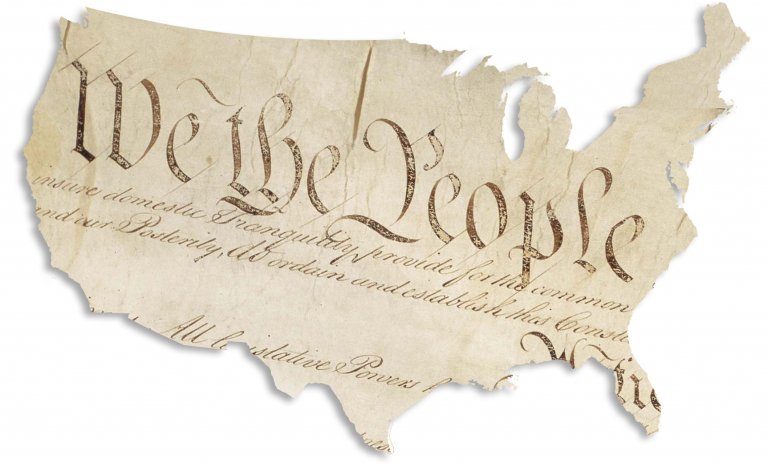 We the People
insure domestic Tranquility, provide for the common
and our Posterity, do ordain and establish this Const
All legislative Powers